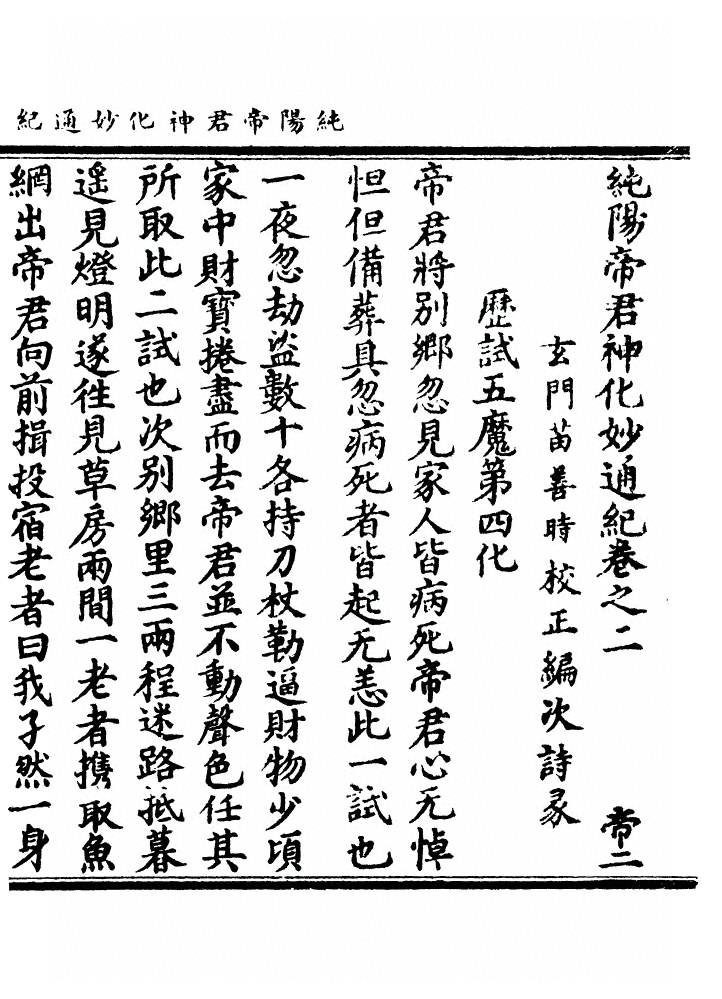 純陽帝君神化妙通紀
純陽帝君神化妙通紀卷之二 帝二
玄門苗善時校正編次詩彖
歷試五魔第四化
帝君將別鄉忽見家人皆病死帝君心无悼
怛但備葬具忽病死者皆起无恙此一試也
一夜忽劫盜數十各持刀杖勒逼財物少頃
家中財寶捲盡而去帝君並不動聲色任其
所取此二試也次別鄉里三兩程迷路抵暮
遥見燈明遂徃見草房兩間一老者携取魚
網出帝君向前揖投宿老者曰我孑然一身